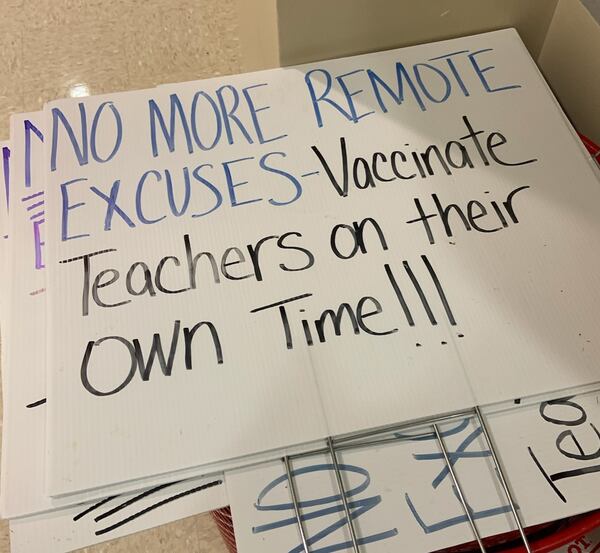 NO MORE REMOTE
EXCUSES-Vaccinate
Teachers on their
Own Time!!!
NO EX
Tea